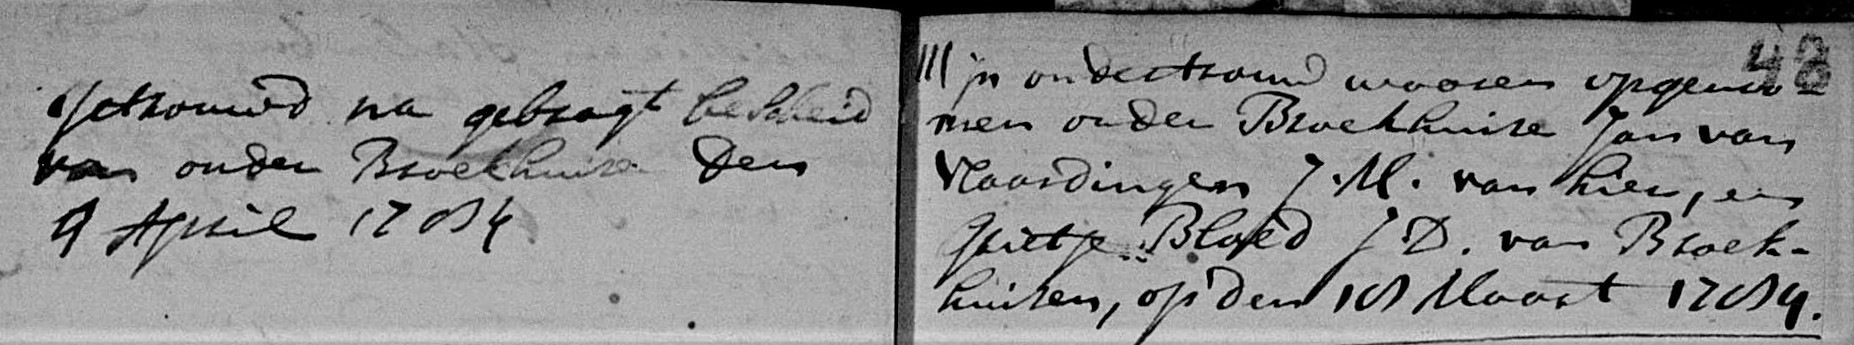 Getrouwd na gebragt bescheid
van onder Broekhuise den
9 April 1784
48
Zijn ondertrouwd woorden opgenoo-
men onder Broekhuise Jan van
Vlaardingen J.M. van hier, en
Grietje Bloed J.D. van Broek-
huisen, op den 18 Maart 1784.